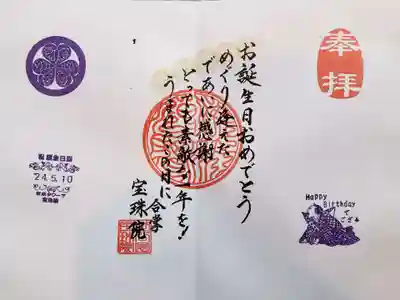 奉拝
お誕生日おめでとう
めぐり逢えた
であいに感謝
とっても素敵な一年を!
うまれたの日に
合掌
宝珠院
24.5.10
Happy
Birthday
でござる